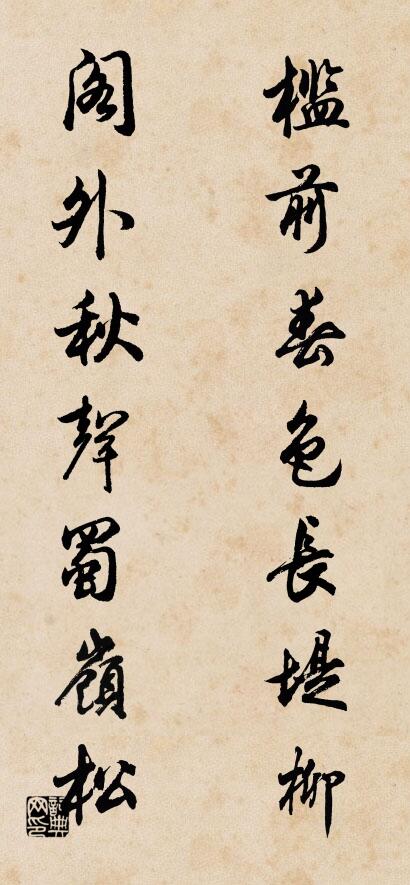 檻前春色長堤柳
閣外秋聲蜀嶺松